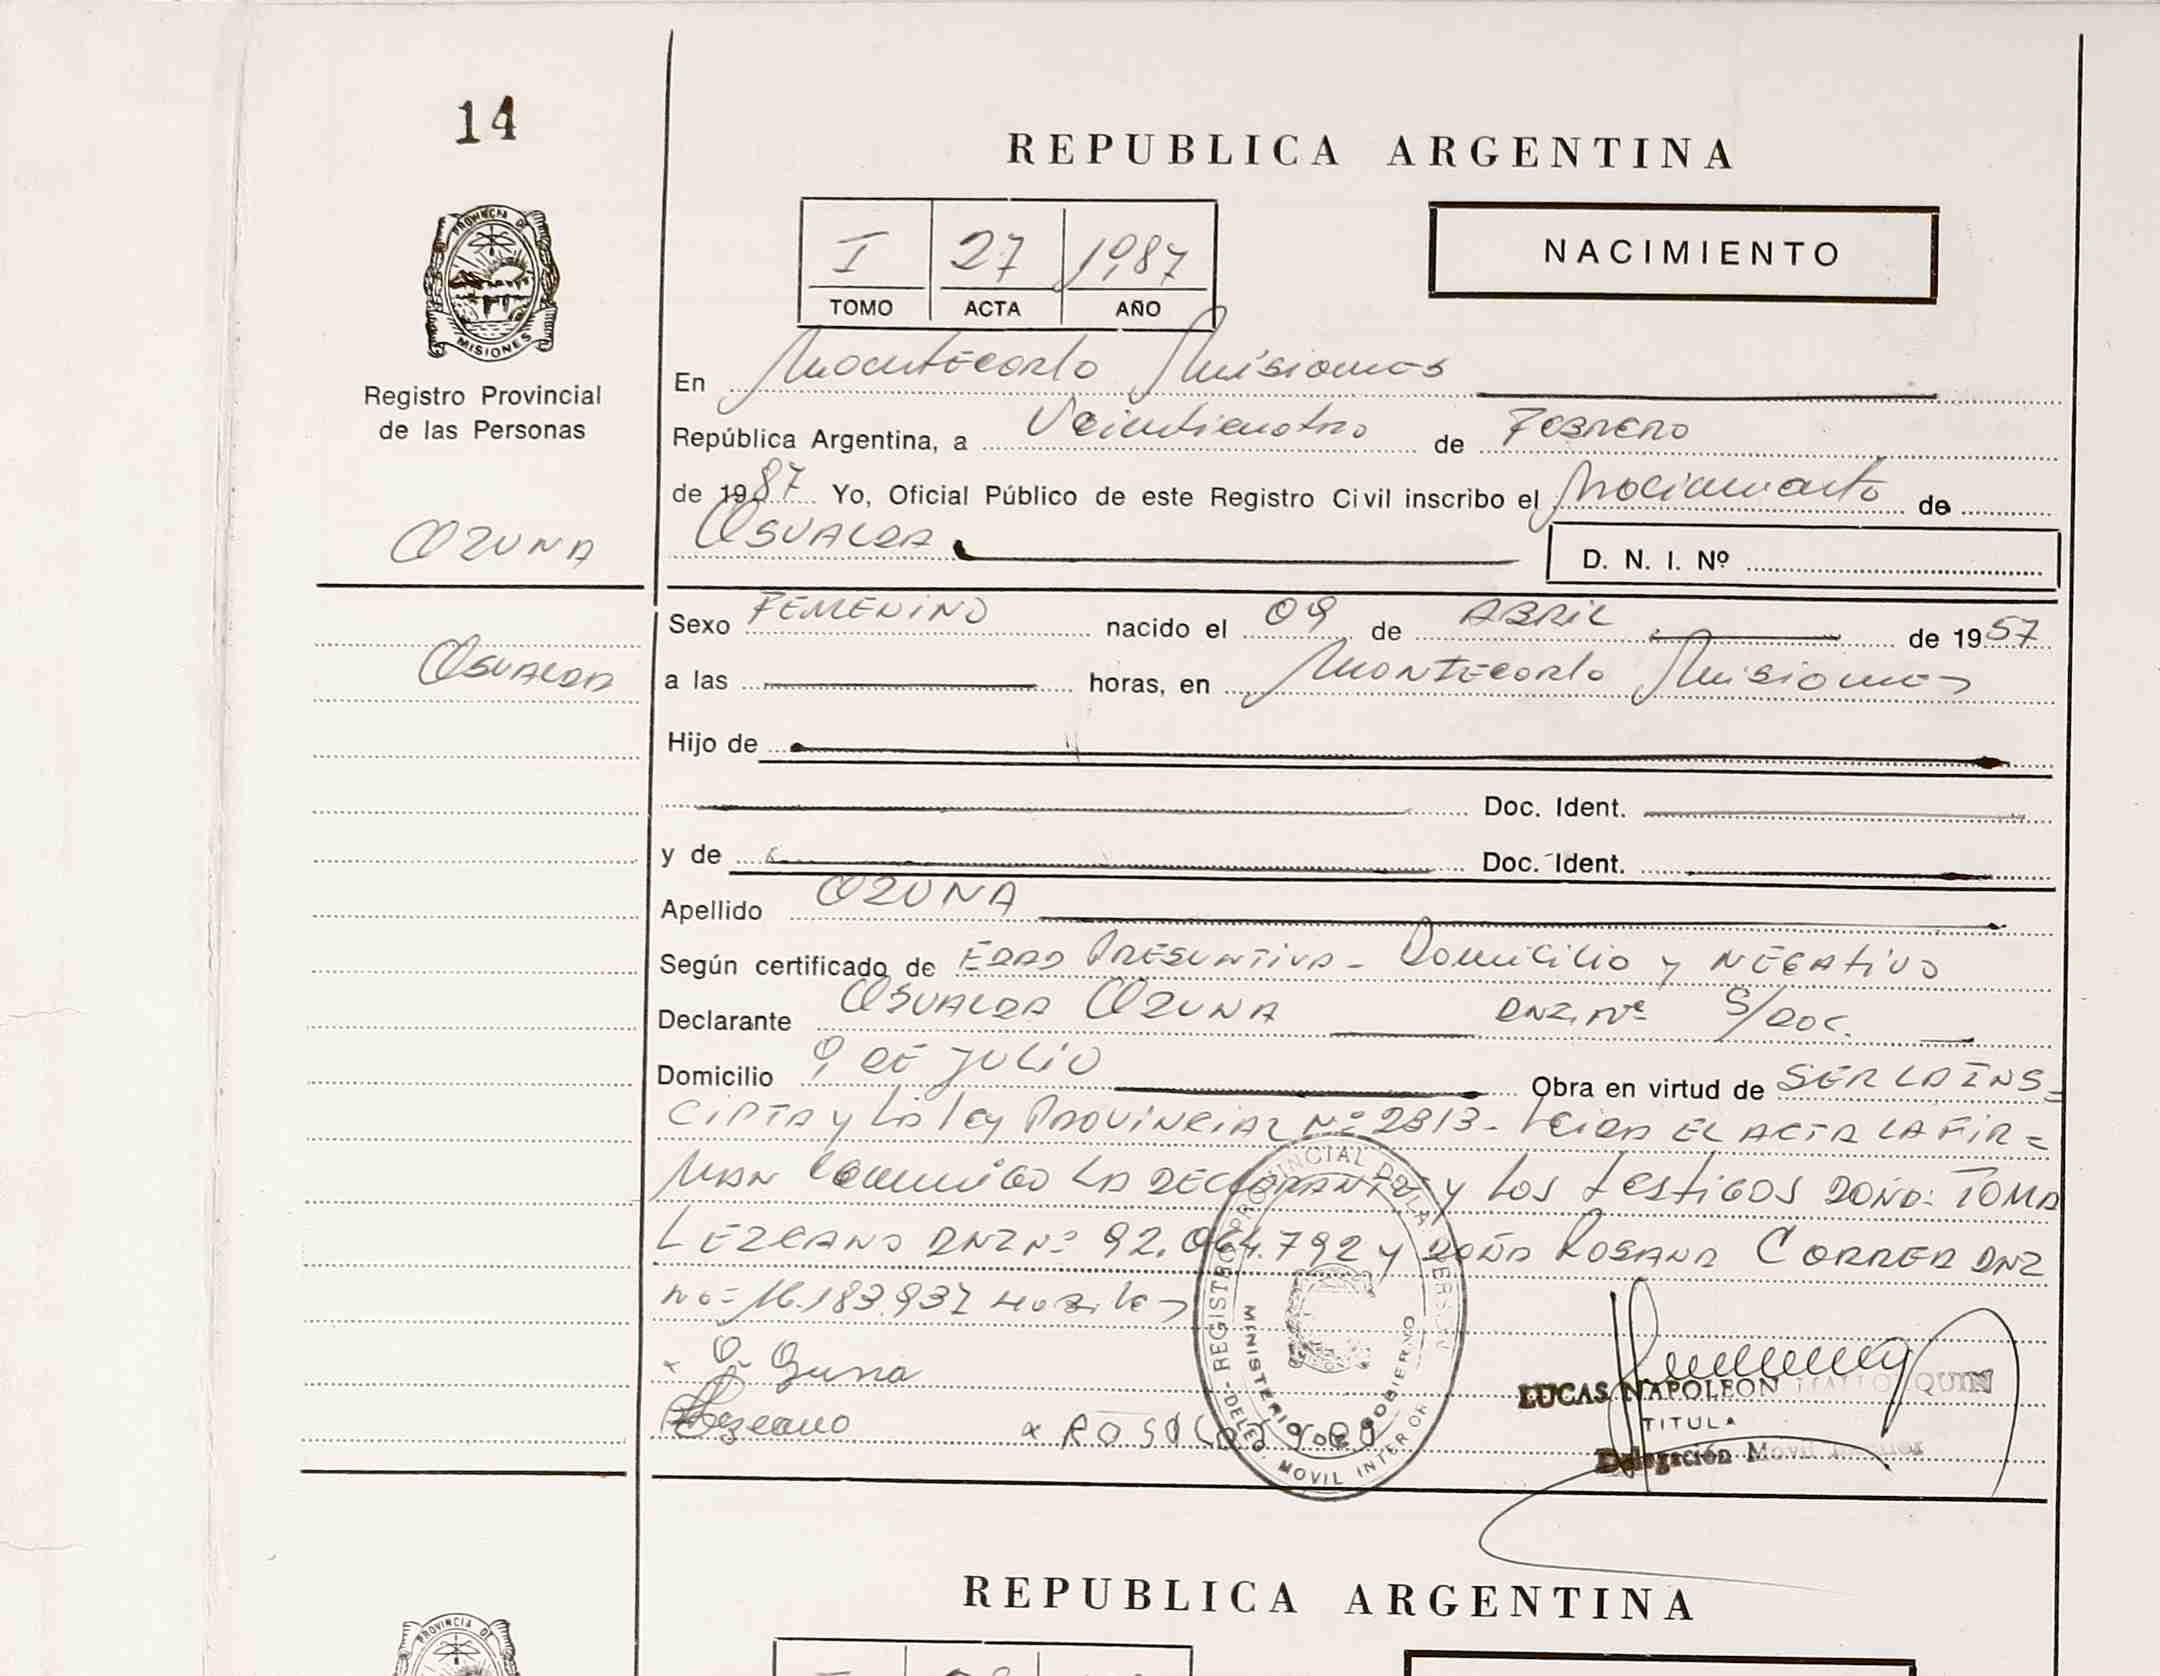 14
REPUBLICA ARGENTINA
PROVINCIA DE
MISIONES
I 27 1987
TOMO ACTA AÑO
NACIMIENTO
Registro Provincial
de las Personas
En Montecarlo Misiones
República Argentina, a Veinticuatro de Febrero
de 1987 Yo, Oficial Público de este Registro Civil inscribo el Nacimiento de
OZUNA
OSVALDA
D. N. I. Nº
Sexo FEMENINO nacido el 09 de ABRIL de 1957
OSVALDA
a las horas, en Montecarlo Misiones
Hijo de
Doc. Ident.
y de Doc. Ident.
Apellido OZUNA
Según certificado de EDAD PRESUNTIVA - Domicilio y NEGATIVO
Declarante OSVALDA OZUNA DNI. Nº S/DOC.
Domicilio 9 DE JULIO Obra en virtud de SER LA INS=
CIPTA y LA ley PROVINCIAL Nº 2813- Leida EL ACTA LA FIR=
MAN Conmigo LA DECLARANTE y LOS testigos DOÑA: TOMA
LEZCANO DNI Nº 92.064.792 y DOÑA ROSANA CORREA DNI
Nº= 16.183.937 Habiles
x O. Ozuna
Lezcano
x ROSA
REGISTRO PROVINCIAL DE LAS PERSONAS
MINISTERIO DE GOBIERNO
DELEG. MOVIL INTERIOR
LUCAS NAPOLEON MALLORQUIN
TITULA
Delegación Movil Interior
REPUBLICA ARGENTINA
PROVINCIA DE